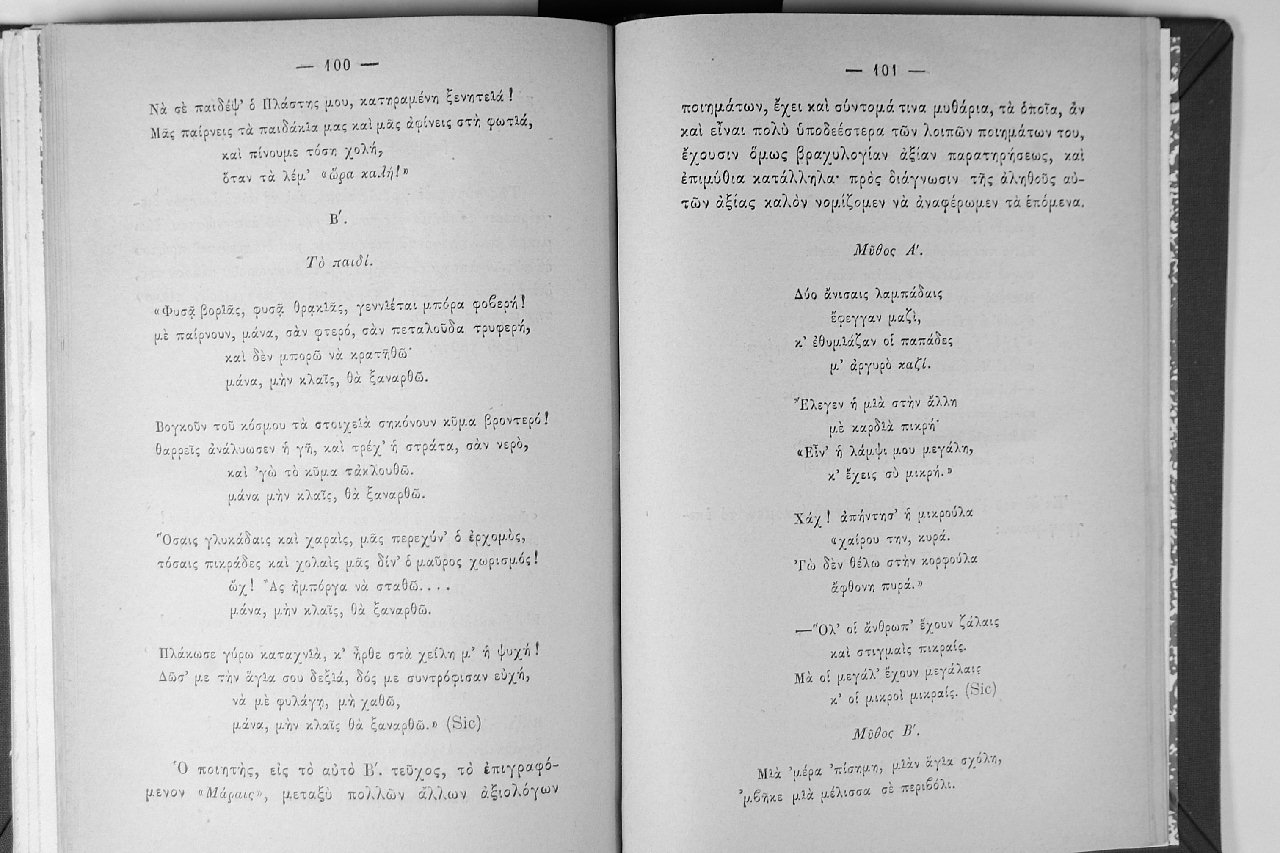 — 100 —
Νὰ σὲ παιδέψ’ ὁ Πλάστης μου, κατηραμένη ξενητειά!
Μᾶς παίρνεις τὰ παιδάκια μας καὶ μᾶς ἀφίνεις στὴ φωτιά,
καὶ πίνουμε τόση χολή,
ὅταν τὰ λέμ’ «ὥρα καλή!»
Β′.
Τὸ παιδί.
«Φυσᾷ βοριᾶς, φυσᾷ θρακιᾶς, γεννιέται μπόρα φοβερή!
μὲ παίρνουν, μάνα, σὰν φτερό, σὰν πεταλοῦδα τρυφερή,
καὶ δὲν μπορῶ νὰ κρατηθῶ·
μάνα, μὴν κλαῖς, θὰ ξαναρθῶ.
Βογκοῦν τοῦ κόσμου τὰ στοιχειὰ σηκόνουν κῦμα βροντερό!
θαρρεῖς ἀνάλυωσεν ἡ γῆ, καὶ τρέχ’ ἡ στράτα, σὰν νερὸ,
καὶ ’γὼ τὸ κῦμα τἀκλουθῶ.
μάνα μὴν κλαῖς, θὰ ξαναρθῶ.
Ὅσαις γλυκάδαις καὶ χαραὶς, μᾶς περεχύν’ ὁ ἐρχομὺς,
τόσαις πικράδες καὶ χολαὶς μᾶς δίν’ ὁ μαῦρος χωρισμός!
ὤχ! Ἂς ἠμπόργα νὰ σταθῶ....
μάνα, μὴν κλαῖς, θὰ ξαναρθῶ.
Πλάκωσε γύρω καταχνιὰ, κ’ ἦρθε στὰ χείλη μ’ ἡ ψυχή!
Δῶσ’ με τὴν ἅγια σου δεξιά, δός με συντρόφισαν εὐχή,
νὰ μὲ φυλάγῃ, μὴ χαθῶ,
μάνα, μὴν κλαῖς θὰ ξαναρθῶ.» (Sic)
Ὁ ποιητὴς, εἰς τὸ αὐτὸ Β′. τεῦχος, τὸ ἐπιγραφό-
μενον «Μάραις», μεταξὺ πολλῶν ἄλλων ἀξιολόγων
— 101 —
ποιημάτων, ἔχει καὶ σύντομά τινα μυθάρια, τὰ ὁποῖα, ἂν
καὶ εἶναι πολὺ ὑποδεέστερα τῶν λοιπῶν ποιημάτων του,
ἔχουσιν ὅμως βραχυλογίαν ἀξίαν παρατηρήσεως, καὶ
ἐπιμύθια κατάλληλα· πρὸς διάγνωσιν τῆς ἀληθοῦς αὐ-
τῶν ἀξίας καλὸν νομίζομεν νὰ ἀναφέρωμεν τὰ ἑπόμενα.
Μῦθος Α′.
Δύο ἄνισαις λαμπάδαις
ἔφεγγαν μαζὶ,
κ’ ἐθυμιάζαν οἱ παπάδες
μ’ ἀργυρὸ καζί.
Ἔλεγεν ἡ μιὰ στὴν ἄλλη
μὲ καρδιὰ πικρή·
«Εἶν’ ἡ λάμψι μου μεγάλη,
κ’ ἔχεις σὺ μικρή.»
Χάχ! ἀπήντησ’ ἡ μικροῦλα
«χαίρου την, κυρά.
’Γὼ δὲν θέλω στὴν κορφοῦλα
ἄφθονη πυρά.»
—Ὅλ’ οἱ ἄνθρωπ’ ἔχουν ζάλαις
καὶ στιγμαὶς πικραίς.
Μὰ οἱ μεγάλ’ ἔχουν μεγάλαις
κ’ οἱ μικροὶ μικραίς. (Sic)
Μῦθος Β′.
Μιὰ ’μέρα ’πίσημη, μιὰν ἅγια σχόλη,
’μβῆκε μιὰ μέλισσα σὲ περιβόλι.